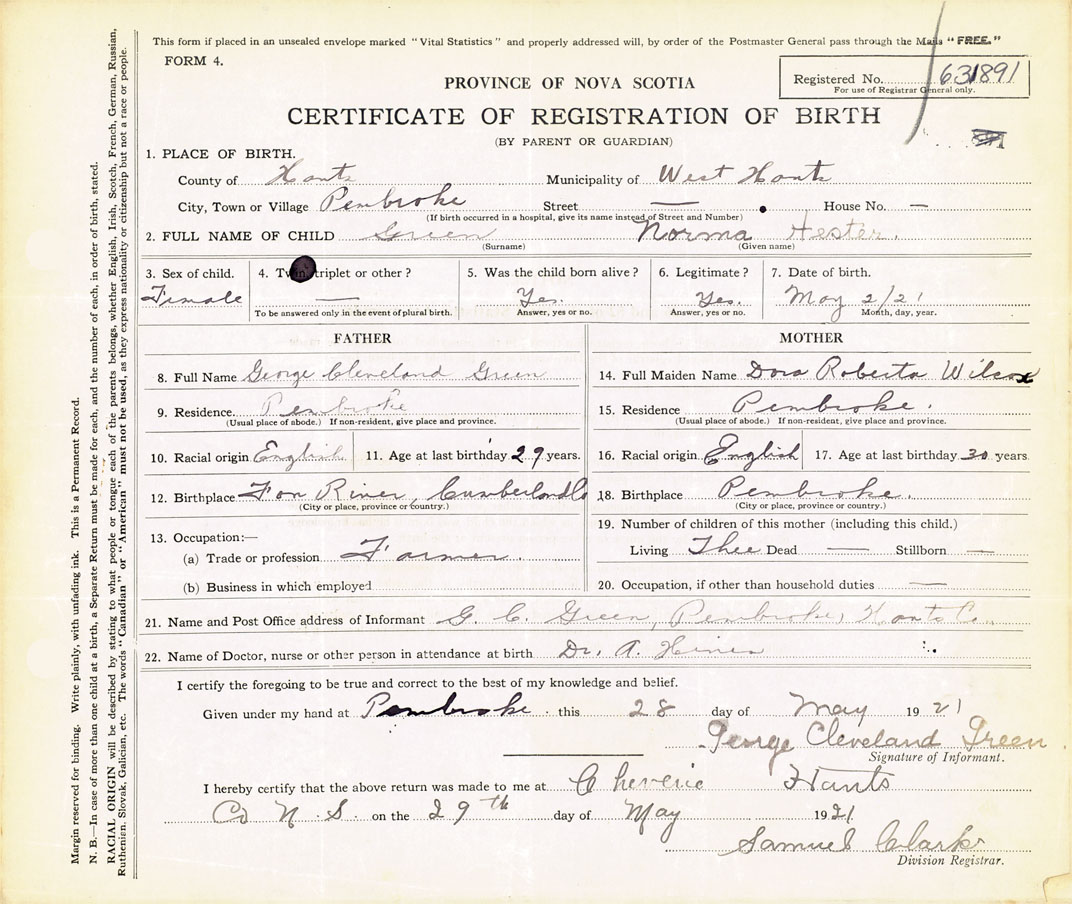 This form if placed in an unsealed envelope marked "Vital Statistics" and properly addressed will, by order of the Postmaster General pass through the Mails "FREE."
FORM 4.
Registered No. 631891
For use of Registrar General only.
PROVINCE OF NOVA SCOTIA
CERTIFICATE OF REGISTRATION OF BIRTH
(BY PARENT OR GUARDIAN)
1. PLACE OF BIRTH.
County of Hants Municipality of West Hants
City, Town or Village Pembroke Street — House No. —
(If birth occurred in a hospital, give its name instead of Street and Number)
2. FULL NAME OF CHILD Green Norma Hester.
(Surname) (Given name)
3. Sex of child. 4. Twin, triplet or other? 5. Was the child born alive? 6. Legitimate? 7. Date of birth.
Female — Yes. Yes. May 2/21
To be answered only in the event of plural birth. Answer, yes or no. Answer, yes or no. Month, day, year.
FATHER
8. Full Name George Cleveland Green
9. Residence. Pembroke
(Usual place of abode.) If non-resident, give place and province.
10. Racial origin English 11. Age at last birthday 29 years.
12. Birthplace Fox River, Cumberland Co
(City or place, province or country.)
13. Occupation:—
(a) Trade or profession Farmer.
(b) Business in which employed
MOTHER
14. Full Maiden Name Dora Roberta Wilcox
15. Residence Pembroke.
(Usual place of abode.) If non-resident, give place and province.
16. Racial origin English 17. Age at last birthday 30 years
18. Birthplace Pembroke.
(City or place, province or country.)
19. Number of children of this mother (including this child.)
Living Thee Dead — Stillborn —
20. Occupation, if other than household duties —
21. Name and Post Office address of Informant G. C. Green, Pembroke, Hants Co.
22. Name of Doctor, nurse or other person in attendance at birth Dr. A.
I certify the foregoing to be true and correct to the best of my knowledge and belief.
Given under my hand at Pembroke this 28 day of May 1921
George Cleveland Green
Signature of Informant.
I hereby certify that the above return was made to me at Cheverie Hants
Co N. S. on the 29th day of May 1921
Samuel Clark
Division Registrar.
Margin reserved for binding. Write plainly, with unfading ink. This is a Permanent Record.
N. B.—In case of more than one child at a birth, a Separate Return must be made for each, and the number of each, in order of birth, stated.
RACIAL ORIGIN will be described by stating to what people or tongue each of the parents belongs, whether English, Irish, Scotch, French, German, Russian,
Ruthenian, Slovak, Galician, etc. The words "Canadian" or "American" must not be used, as they express nationality or citizenship but not a race or people.